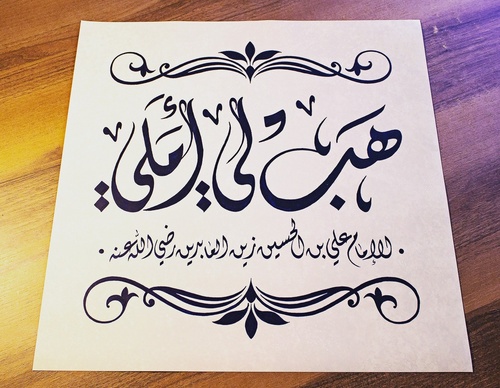 هَبْ لي أَمَلي
الإمام علي بن الحسين زين العابدين رضي الله عنه